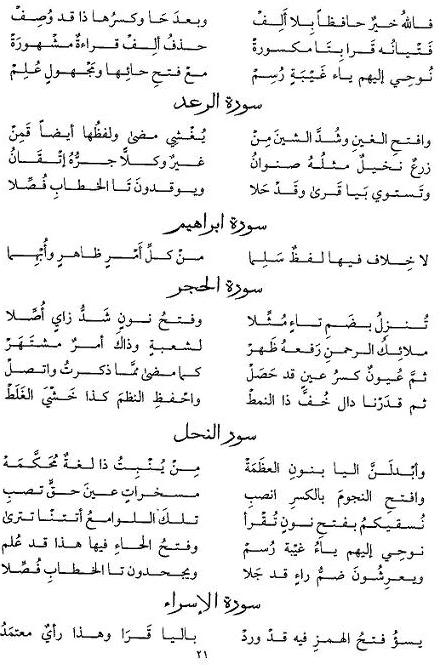 فاللهُ خيرٌ حافظاً بِلا أَلِفْ وبعدَ حَا وكسرُها ذا قد وُصِفْ
فَتْيانُه قَرا بِتَا مكسورةْ حذفُ ألِفْ قراءةٌ مشهُورَةْ
نُوحِي إليهم ياء غَيْبَةٍ رُسِمْ مع فتحِ حائِها ومَجْهولٍ عُلِمْ
سورة الرعد
وافتحِ الغينِ وشُدَّ الشينَ مِنْ يُغْشِي مضىٰ ولفظُها أيضاً قَمِنْ
زرعٌ نخيلٌ مثلُهُ صنوانُ غيرُ وكلاًّ جرُّهُ إتْقَانُ
وتَستوي بَيا قَرىٰ وقَدْ حَلا ويوقدونَ تَا الخطابِ فُصِّلا
سورة ابراهيم
لا خِلاف فيها لفظٌ سَلِمَا من كلِّ أَمْرٍ ظاهرٍ وأُبْهِمَا
سورة الحجر
تُنزلُ بضَمِ تاءٍ مُثِّلا وفتحُ نونٍ شَدُّ زايٍ أُصِّلا
ملائِكُ الرحمنِ رَفعهُ ظَهَرْ لشعبةٍ وذاكَ أمرٌ مشتَهَرْ
ثمَّ عُيونٌ كسرُ عينٍ قد حَصَلْ كما مضىٰ ممَّا ذكرتُ واتصلْ
ثم قدَرْنا دال خُفَّ ذا النمطْ واحْفظِ النظمَ كذا خَشْيَ الغَلَطْ
سور النحل
وأبْدلَنَّ اليا بنونِ العظمَةْ مِنْ يُنْبِتُ ذا لغةٌ مُحكَّمَةْ
وافتحِ النجومَ بالكسرِ انصِبِ مسخراتٍ عينَ حقٍّ تصبِ
نُسقيكمُ بفتحِ نونٍ تُقْرأْ تلكَ اللوامعُ أتتنْنا تترىٰ
نوحي إليهم ياءُ غَيْبة رُسِمْ وفتحُ الحاءِ فيها هذا قد عُلم
ويعرِشُونَ ضمُّ راءٍ قد جَلا ويجحدون تا الخطابِ فُصِّلا
سورة الإسراء
يسؤ فتحُ الهمزِ فيه قد وردْ باليا قَرَا وهذا رأيٌ معتمَدُ
٢١